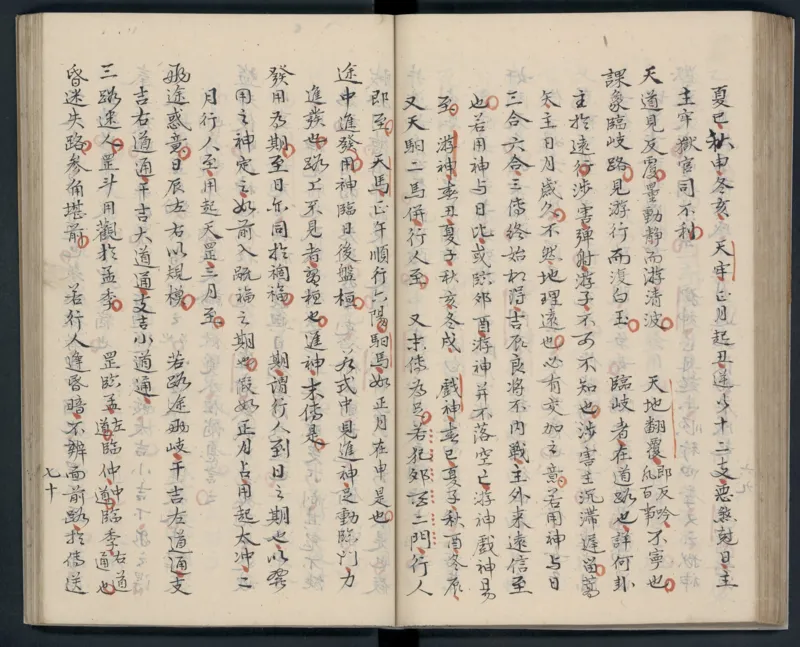 夏巳秋申冬亥 天牢正月起丑逆行十二支惡煞尅日主
主牢獄官司不利
天道見反覆量動靜而游清波 天地翻覆即反吟凡百事不寧也
課象臨岐路見游行而復白玉 臨岐者在道路也詳何卦
主於遠行涉害殫射游子不可不知也涉害主沉滯遲留蒿
矢主日月歲久不然地理遠也必有交加之意若用神与日
三合六合三傳終始相得吉辰良將不内戰主外来遠信至
也若用神与日比或臨卯酉游神并不落空亡游神戲神易
至 游神春丑夏子秋亥冬戌 戲神春巳夏子秋酉冬辰
又天駟二馬併行人至 又末傳為足若犯卯酉二門行人
即至 天馬正午順行六陽駟馬如正月在申是也
途中進發用神臨日後盤桓 於式中見進神足動臨門力
進發也路上不見者盤桓也進神末傳是
發用為期至日尓同於禍福 期謂行人到日之期也以發
用之神定之如前入號福之期也假如正月占用起太冲二
月行人至用起天罡三月至
兩途惑章日辰左右以規模 若路途兩岐干吉左道通支
吉右道通干吉大道通支吉小道通
三路迷人罡斗用觀於孟季 罡臨孟左道臨仲中道臨季右道通也
昏迷失路參角堪前 若行人逢昏暗不辨面前路於傳送
七十